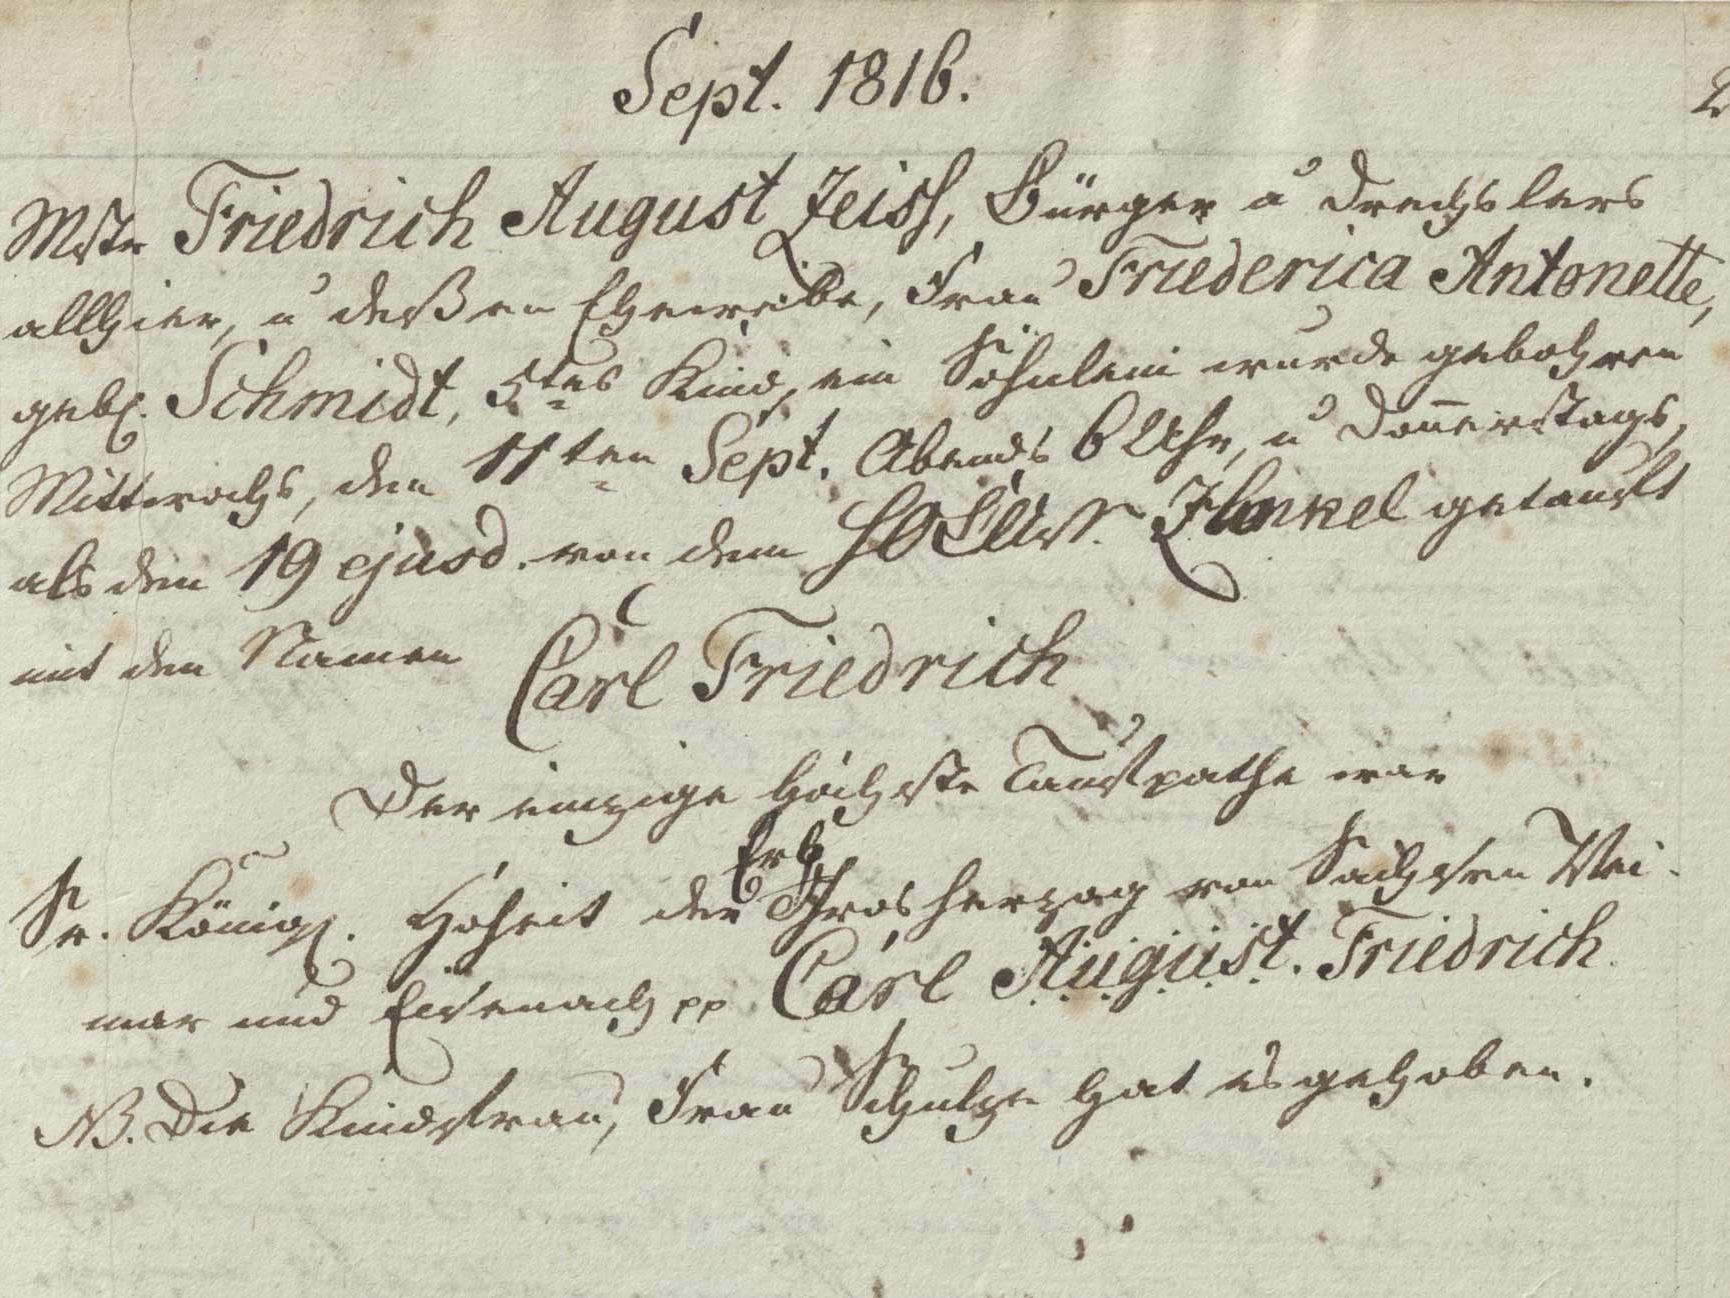 Sept. 1816.
Mstr Friedrich August Zeiss, Bürger u Drechslers
allhier, u deßen Eheweibe, Frau Friederica Antonette,
geb. Schmidt, 5tes Kind, ein Söhnlein wurde gebohren
Mittwochs, den 11ten Sept. Abends 6 Uhr, u Donnerstags,
als den 19 ejusd. von dem Zunkel getauft
mit den Namen Carl Friedrich
Der einzige höchste Taufpathe war
Sr. Königl. Hoheit der Erb Grosherzog von Sachsen Wei-
mar und Eisenach pp Carl August. Friedrich.
NB. Die Kindfrau, Frau Schulze hat es gehoben.